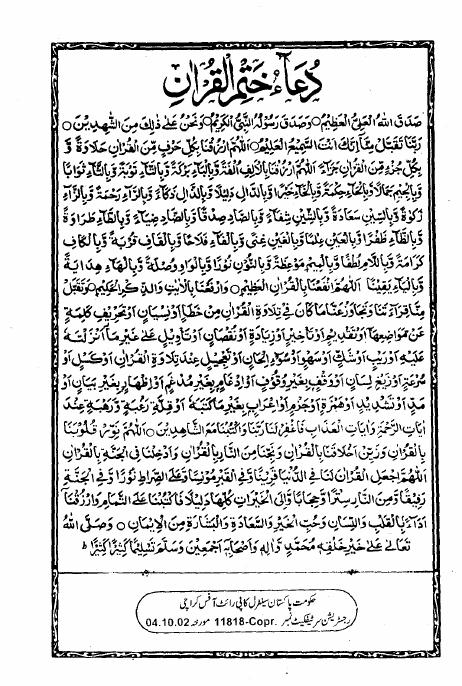 دُعَاءُ خَتْمِ الْقُرْاٰنِ
صَدَقَ اللهُ الْعَلِيُّ الْعَظِيْمُ وَصَدَقَ رَسُوْلُهُ النَّبِيُّ الْكَرِيْمُ وَنَحْنُ عَلٰى ذٰلِكَ مِنَ الشّٰهِدِيْنَ ○
رَبَّنَا تَقَبَّلْ مِنَّا اِنَّكَ اَنْتَ السَّمِيْعُ الْعَلِيْمُ ○ اَللّٰهُمَّ ارْزُقْنَا بِكُلِّ حَرْفٍ مِّنَ الْقُرْاٰنِ حَلَاوَةً وَّ
بِكُلِّ جُزْءٍ مِّنَ الْقُرْاٰنِ جَزَآءً اَللّٰهُمَّ ارْزُقْنَا بِالْاَلِفِ اُلْفَةً وَّبِالْبَآءِ بَرَكَةً وَّبِالتَّآءِ تَوْبَةً وَّبِالثَّآءِ ثَوَابًا
وَّبِالْجِيْمِ جَمَالًا وَّبِالْحَآءِ حِكْمَةً وَّبِالْخَآءِ خَيْرًا وَّبِالدَّالِ دَلِيْلًا وَّبِالذَّالِ ذَكَآءً وَّبِالرَّآءِ رَحْمَةً وَّبِالزَّآءِ
زَكٰوةً وَّبِالسِّيْنِ سَعَادَةً وَّبِالشِّيْنِ شِفَآءً وَّبِالصَّادِ صِدْقًا وَّبِالضَّادِ ضِيَآءً وَّبِالطَّآءِ طَرَاوَةً
وَّبِالظَّآءِ ظَفَرًا وَّبِالْعَيْنِ عِلْمًا وَّبِالْغَيْنِ غِنًى وَّبِالْفَآءِ فَلَاحًا وَّبِالْقَافِ قُرْبَةً وَّبِالْكَافِ
كَرَامَةً وَّبِاللَّامِ لُطْفًا وَّبِالْمِيْمِ مَوْعِظَةً وَّبِالنُّوْنِ نُوْرًا وَّبِالْوَاوِ وُصْلَةً وَّبِالْهَآءِ هِدَايَةً
وَّبِالْيَآءِ يَقِيْنًا اَللّٰهُمَّ انْفَعْنَا بِالْقُرْاٰنِ الْعَظِيْمِ ○ وَارْفَعْنَا بِالْاٰيٰتِ وَالذِّكْرِ الْحَكِيْمِ ○ وَتَقَبَّلْ
مِنَّا قِرَآءَتَنَا وَتَجَاوَزْ عَنَّا مَا كَانَ فِيْ تِلَاوَةِ الْقُرْاٰنِ مِنْ خَطَاٍ اَوْ نِسْيَانٍ اَوْ تَحْرِيْفِ كَلِمَةٍ
عَنْ مَّوَاضِعِهَا اَوْ تَقْدِيْمٍ اَوْ تَاْخِيْرٍ اَوْ زِيَادَةٍ اَوْ نُقْصَانٍ اَوْ تَاْوِيْلٍ عَلٰى غَيْرِ مَا اَنْزَلْتَهٗ
عَلَيْهِ اَوْ رَيْبٍ اَوْ شَكٍّ اَوْ سَهْوٍ اَوْ سُوْٓءِ اِلْحَانٍ اَوْ تَعْجِيْلٍ عِنْدَ تِلَاوَةِ الْقُرْاٰنِ اَوْ كَسَلٍ اَوْ
سُرْعَةٍ اَوْ زَيْغِ لِسَانٍ اَوْ وَقْفٍ بِغَيْرِ وُقُوْفٍ اَوْ اِدْغَامٍ بِغَيْرِ مُدْغَمٍ اَوْ اِظْهَارٍ بِغَيْرِ بَيَانٍ اَوْ
مَدٍّ اَوْ تَشْدِيْدٍ اَوْ هَمْزَةٍ اَوْ جَزْمٍ اَوْ اِعْرَابٍ بِغَيْرِ مَا كَتَبَهٗ اَوْ قِلَّةِ رَغْبَةٍ وَّرَهْبَةٍ عِنْدَ
اٰيَاتِ الرَّحْمَةِ وَاٰيَاتِ الْعَذَابِ فَاغْفِرْ لَنَا رَبَّنَا وَاكْتُبْنَا مَعَ الشَّاهِدِيْنَ ○ اَللّٰهُمَّ نَوِّرْ قُلُوْبَنَا
بِالْقُرْاٰنِ وَزَيِّنْ اَخْلَاقَنَا بِالْقُرْاٰنِ وَنَجِّنَا مِنَ النَّارِ بِالْقُرْاٰنِ وَاَدْخِلْنَا فِي الْجَنَّةِ بِالْقُرْاٰنِ
اَللّٰهُمَّ اجْعَلِ الْقُرْاٰنَ لَنَا فِي الدُّنْيَا قَرِيْنًا وَّفِي الْقَبْرِ مُوْنِسًا وَّعَلَى الصِّرَاطِ نُوْرًا وَّفِي الْجَنَّةِ
رَفِيْقًا وَّمِنَ النَّارِ سِتْرًا وَّحِجَابًا وَّاِلَى الْخَيْرَاتِ كُلِّهَا دَلِيْلًا فَاكْتُبْنَا عَلَى التَّمَامِ وَارْزُقْنَا
اَدَآءً بِالْقَلْبِ وَاللِّسَانِ وَحُبِّ الْخَيْرِ وَالسَّعَادَةِ وَالْبَشَارَةِ مِنَ الْاِيْمَانِ ○ وَصَلَّى اللهُ
تَعَالٰى عَلٰى خَيْرِ خَلْقِهٖ مُحَمَّدٍ وَّاٰلِهٖ وَاَصْحَابِهٖ اَجْمَعِيْنَ وَسَلَّمَ تَسْلِيْمًا كَثِيْرًا كَثِيْرًا ط
حکومت پاکستان سینٹرل کاپی رائٹ آفس کراچی
رجسٹریشن سرٹیفکیٹ نمبر 11818-Copr. مورخہ 04.10.02